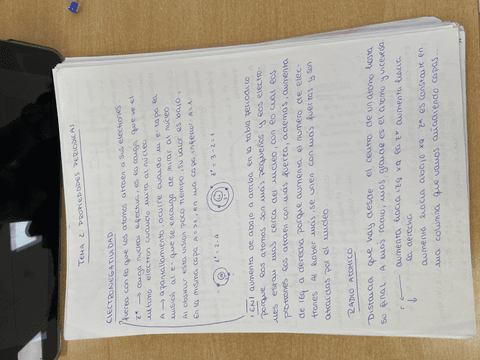 TEMA 2: PROPIEDADES PERIÓDICAS
ELECTRONEGATIVIDAD
fuerza con la que los átomos atraen a sus electrones
Z* → carga nuclear efectiva, es la carga que ve el
último electrón cuando mira al núcleo
A → apantallamiento ocurre cuando un e⁻ tapa la
al e⁻ que se encarga de mirar al núcleo
Al el poco tiempo, su valor es bajo.
En la misma capa A = 0'5, en una capa inferior A = 1
Z* = 2 - A
Z* = 3 - 2 = 1
(EN) aumenta de abajo a arriba en la tabla periódica
porque los átomos son más pequeños y los electro-
nes están más cerca del núcleo, con lo cual los
protones los atraen con más fuerza, además, aumenta
de izq a derecha porque aumenta el número de elec-
trones. Al haber más se unen con más fuerza y son
atraídos por el núcleo
RADIO ATÓMICO
Distancia que hay desde el centro de un átomo hasta
su final. A más radio, más grande es el átomo y viceversa
aumenta hacia izq xq la Z* aumenta hacia
la derecha
aumenta hacia abajo xq Z* es constante en
una columna que vamos añadiendo capas...